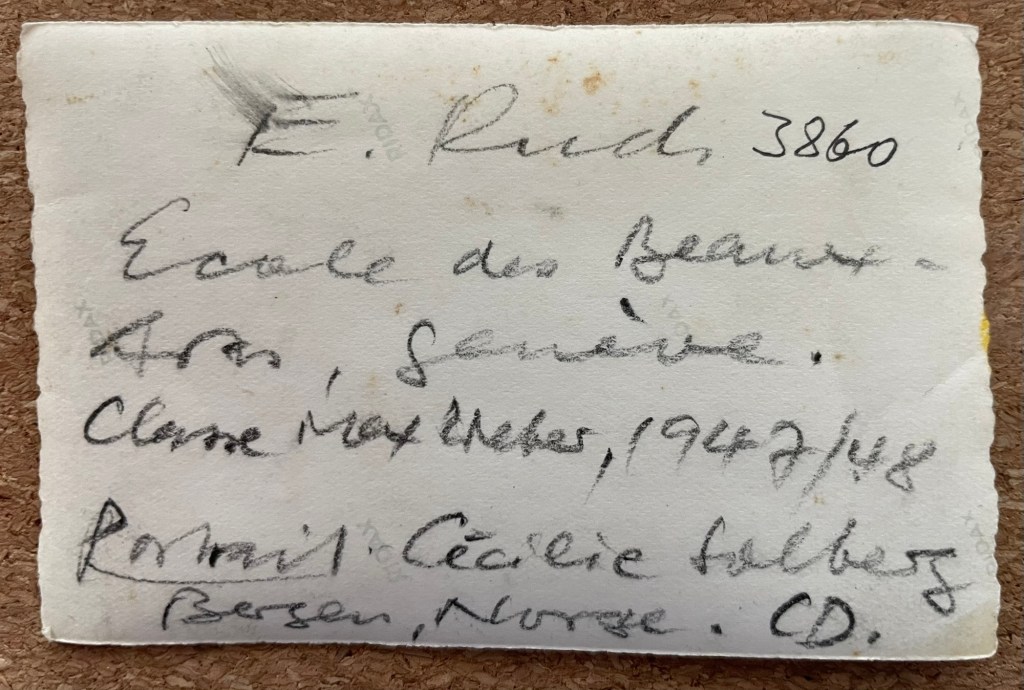 E. Rud. 3860
Ecole des Beaux-
Arts, Genève.
Classe Max Weber, 1947/48
Portrait. Cécilie Solberg
Bergen, Norge. CD.
RIDAX